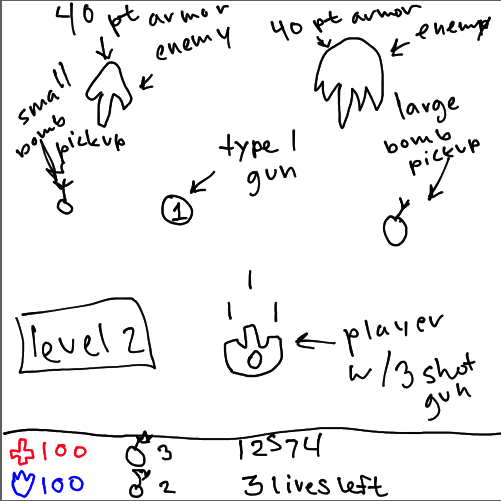 40 pt armor
enemy
40 pt armor
enemy
small
bomb
pickup
type 1
gun
1
large
bomb
pickup
level 2
player
w/3 shot
gun
0
100
3
12574
100
2
3 lives left